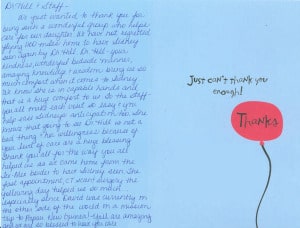 Dr. Hill & Staff -
We just wanted to thank you for
being such a wonderful group who helps
care for our daughter. We have not regretted
flying 800 miles home to have Sidney
seen again by Dr. Hill. Dr. Hill - your
kindness, wonderful bedside manner,
amazing knowledge & wisdom, bring us so
much comfort when it comes to Sidney.
We know she is in capable hands and
that is a huge comfort to us. To the staff -
you all make each visit so easy & you
help ease Sidney's anticipation. Now she
knows that going to see Dr. Hill is not a
bad thing. The willingness because of
you kind of care are a huge blessing.
Thank you all for the way you all
helped us as we came home from the
to have Sidney seen. The
appointment, CT scan & surgery the
following day helped us so much
especially since David was currently on
the other side of the world on a mission
trip to Papua New Guinea! Y'all are amazing
and we are so blessed to have you care
Just can't thank you
enough!
Thanks